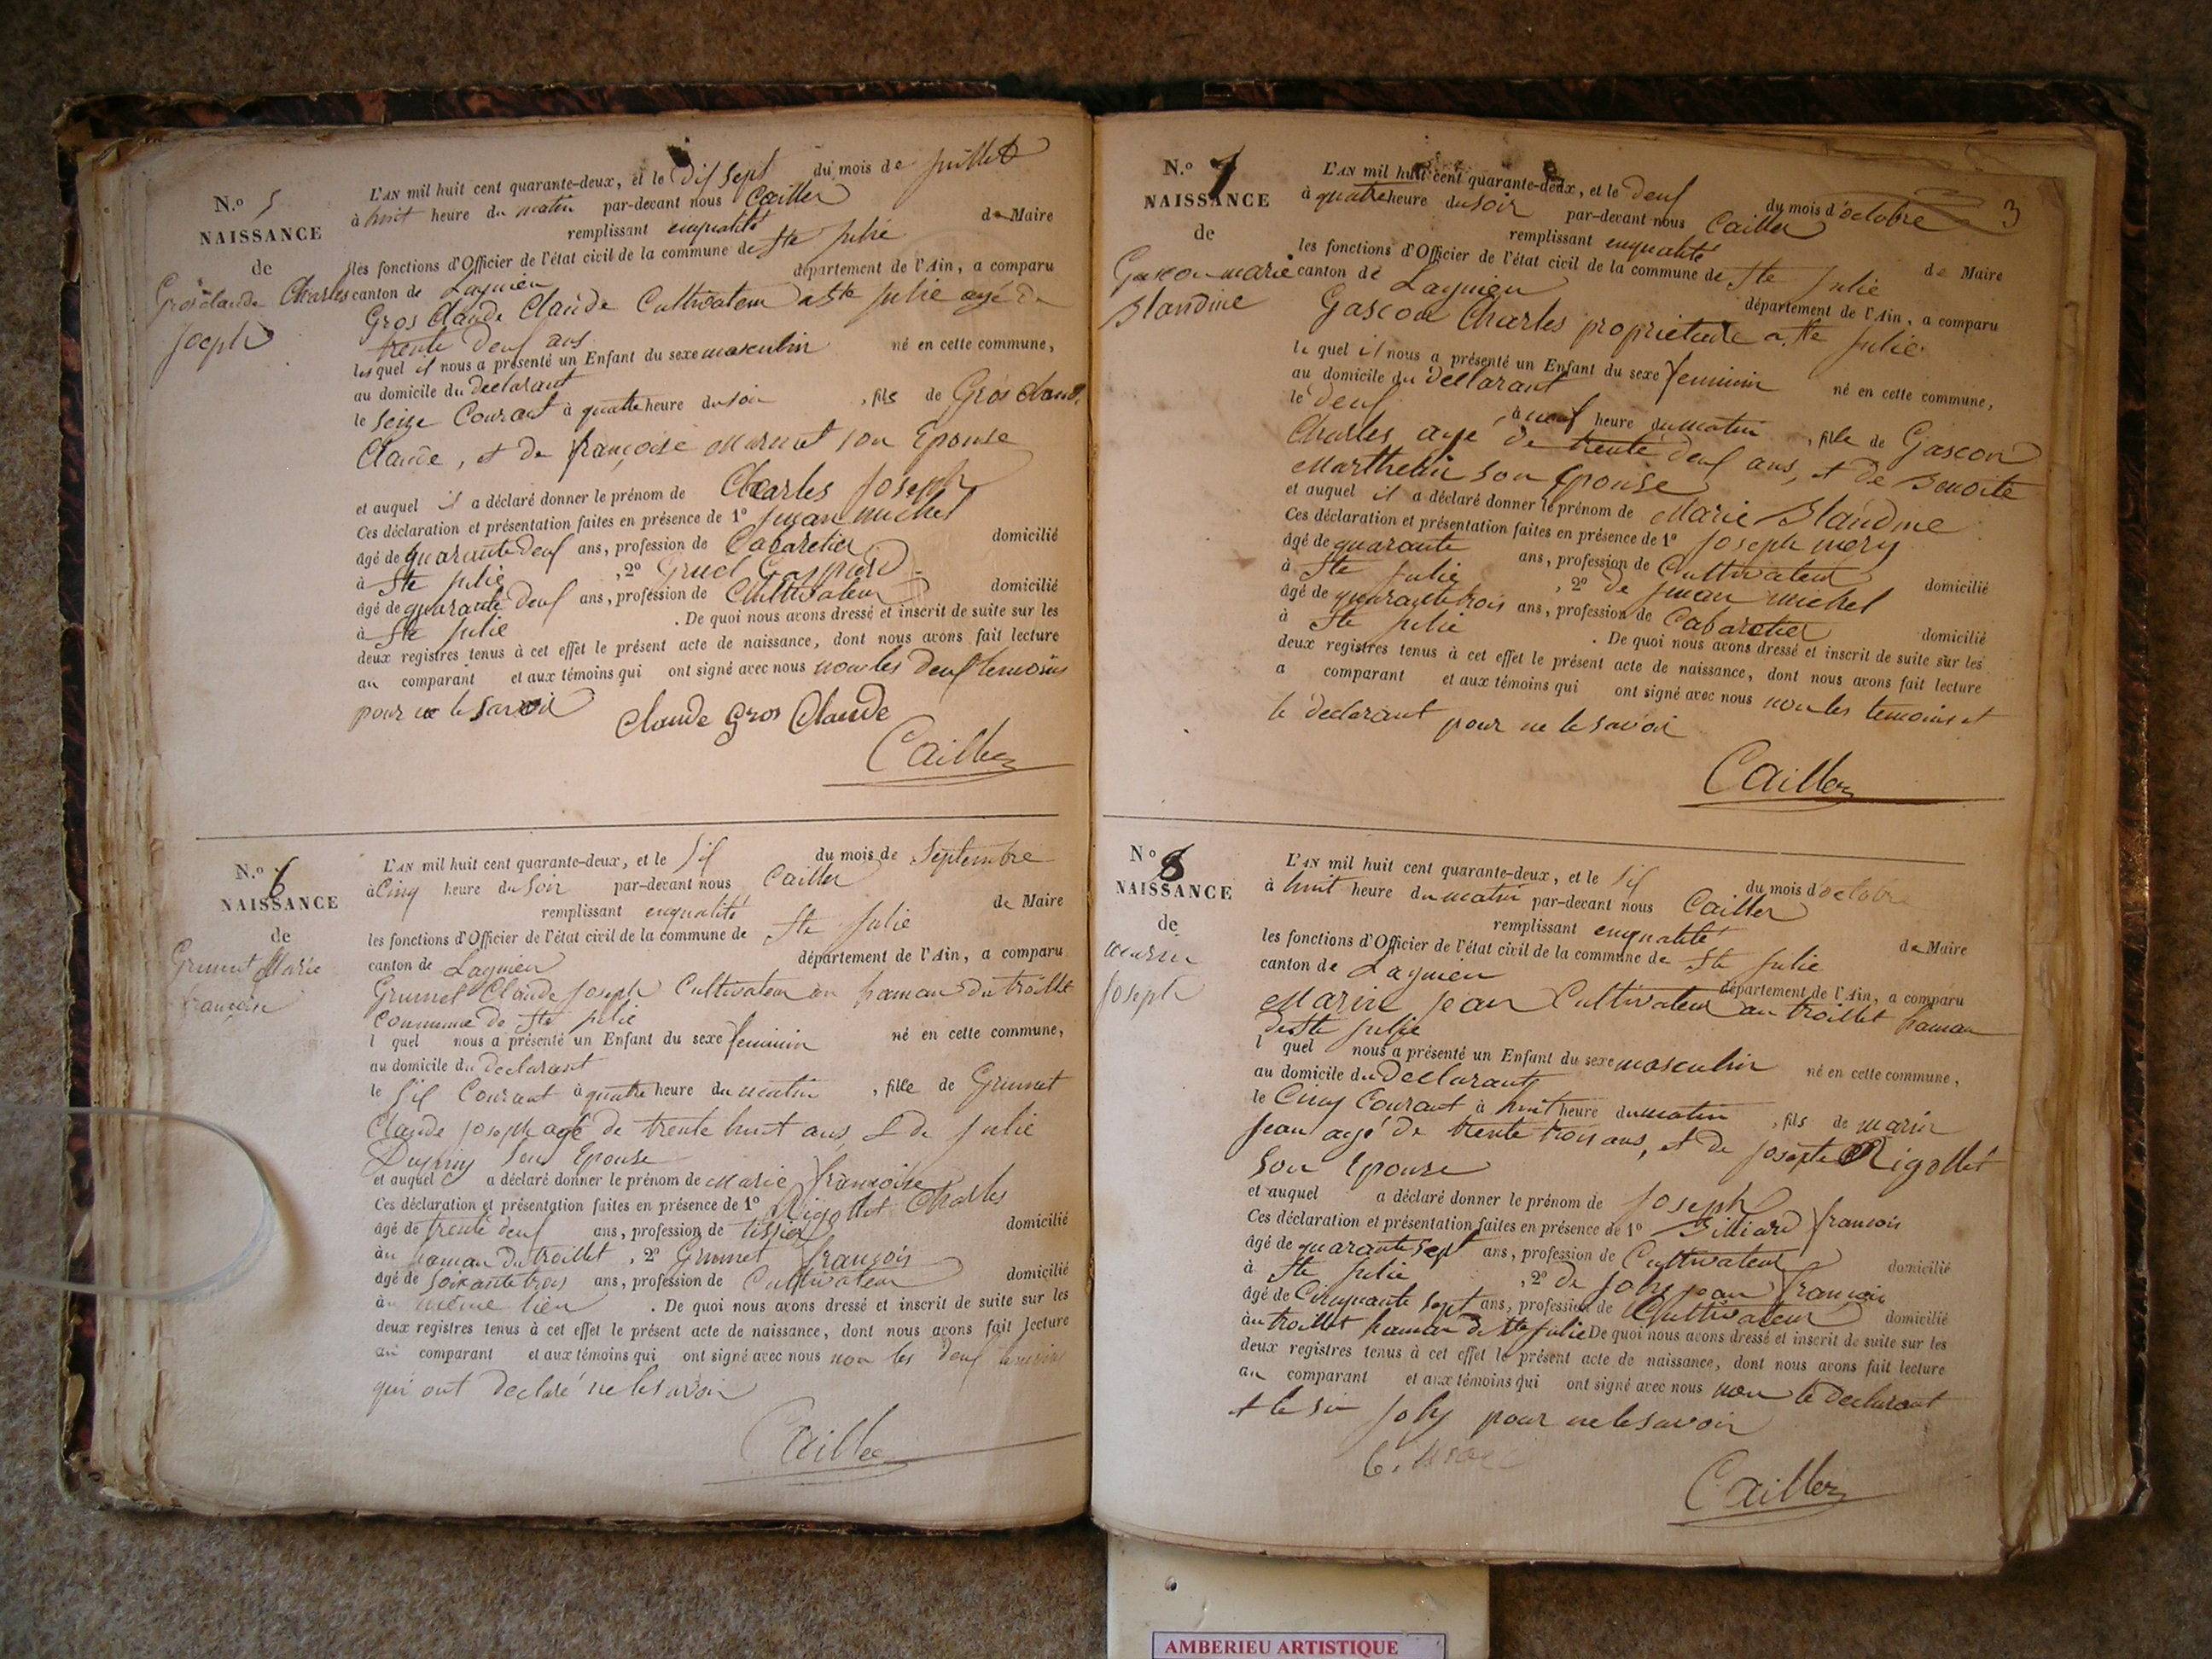 N.o 5
NAISSANCE
de
Gros Claude Charles
Joseph
L'AN mil huit cent quarante-deux, et le dix sept du mois de juillet
à huit heure du matin par-devant nous Cailler
remplissant enqualité de Maire
les fonctions d'Officier de l'état civil de la commune de Ste Julie
canton de Lagnieu département de l'Ain, a comparu
Gros Claude Claude Cultivateur a Ste Julie agé de
trente deux ans
lequel il nous a présenté un Enfant du sexe masculin né en cette commune,
au domicile du declarant
le seize Courant à quatre heure du soir, fils de Gros Claude
Claude, et de françoise Marmet son Epouse
et auquel il a déclaré donner le prénom de Charles Joseph
Ces déclaration et présentation faites en présence de 1o Juan michel
âgé de quarante deux ans, profession de Cabaretier domicilié
à Ste Julie, 2o Gruel Gaspard
âgé de quarante deux ans, profession de Cultivateur domicilié
à Ste Julie. De quoi nous avons dressé et inscrit de suite sur les
deux registres tenus à cet effet le présent acte de naissance, dont nous avons fait lecture
au comparant et aux témoins qui ont signé avec nous non les deux temoins
pour ne le savoir
Claude Gros Claude
Cailler
N.o 6
NAISSANCE
de
Grumet Marie
françoise
L'AN mil huit cent quarante-deux, et le six du mois de Septembre
à Cinq heure du Soir par-devant nous Cailler
remplissant enqualité de Maire
les fonctions d'Officier de l'état civil de la commune de Ste Julie
canton de Lagnieu département de l'Ain, a comparu
Grumet Claude Joseph Cultivateur au hamau du troillet
Commune de Ste Julie
l quel nous a présenté un Enfant du sexe feminin né en cette commune,
au domicile du declarant
le six Courant à quatre heure du matin, fille de Grumet
Claude joseph agé de trente huit ans, et de Julie
Dupuis son Epouse
et auquel a déclaré donner le prénom de Marie françoise
Ces déclaration et présentation faites en présence de 1o Rigollet Charles
âgé de trente deux ans, profession de tissier domicilié
au hamau du troillet, 2o Grumet françois
âgé de soixante trois ans, profession de Cultivateur domicilié
au même lieu. De quoi nous avons dressé et inscrit de suite sur les
deux registres tenus à cet effet le présent acte de naissance, dont nous avons fait lecture
au comparant et aux témoins qui ont signé avec nous non les deux temoins
qui ont declaré ne le savoir
Cailler
3
N.o 7
NAISSANCE
de
Gascon marie
Blandine
L'AN mil huit cent quarante-deux, et le deux du mois d'octobre
à quatre heure du soir par-devant nous Cailler
remplissant enqualité de Maire
les fonctions d'Officier de l'état civil de la commune de Ste Julie
canton de Lagnieu département de l'Ain, a comparu
Gascon Charles propriétaire a Ste Julie
le quel il nous a présenté un Enfant du sexe feminin né en cette commune,
au domicile du declarant
le deux à neuf heure du matin, fille de Gascon
Charles agé de trente deux ans, et de Benoite
Marthelin son Epouse
et auquel il a déclaré donner le prénom de Marie Blandine
Ces déclaration et présentation faites en présence de 1o Joseph mery
âgé de quarante ans, profession de Cultivateur domicilié
à Ste Julie, 2o de Juan michel
âgé de quarante trois ans, profession de Cabaretier domicilié
à Ste Julie. De quoi nous avons dressé et inscrit de suite sur les
deux registres tenus à cet effet le présent acte de naissance, dont nous avons fait lecture
a comparant et aux témoins qui ont signé avec nous non les temoins et
le declarant pour ne le savoir
Cailler
No 8
NAISSANCE
de
Marin
Joseph
L'AN mil huit cent quarante-deux, et le six du mois d'octobre
à huit heure du matin par-devant nous Cailler
remplissant enqualité de Maire
les fonctions d'Officier de l'état civil de la commune de Ste Julie
canton de Lagnieu département de l'Ain, a comparu
Marin Jean Cultivateur au troillet hamau
de Ste Julie
l quel nous a présenté un Enfant du sexe masculin né en cette commune,
au domicile du Declarant
le Cinq Courant à huit heure du matin, fils de marin
Jean agé de trente trois ans, et de Josephte Rigollet
son Epouse
et auquel a déclaré donner le prénom de Joseph
Ces déclaration et présentation faites en présence de 1o Billiard francois
âgé de quarante sept ans, profession de Cultivateur domicilié
à Ste Julie, 2o de Joly jean françois
âgé de Cinquante sept ans, profession de Cultivateur domicilié
au troillet hamau de Ste Julie De quoi nous avons dressé et inscrit de suite sur les
deux registres tenus à cet effet le présent acte de naissance, dont nous avons fait lecture
au comparant et aux témoins qui ont signé avec nous non le declarant
et le sir Joly pour ne le savoir
Cailler
AMBERIEU ARTISTIQUE